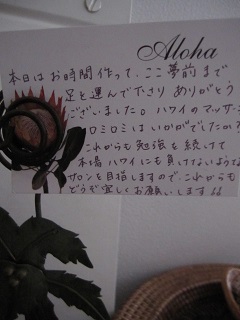 Aloha
本日はお時間作って、ここ夢前まで
足を運んで下さりありがとう
ございました。ハワイのマッサージ
ロミロミはいかがでしたか?
これからも勉強を続けて
本場ハワイにも負けないような
サロンを目指しますので、これからも
どうぞ宜しくお願いします